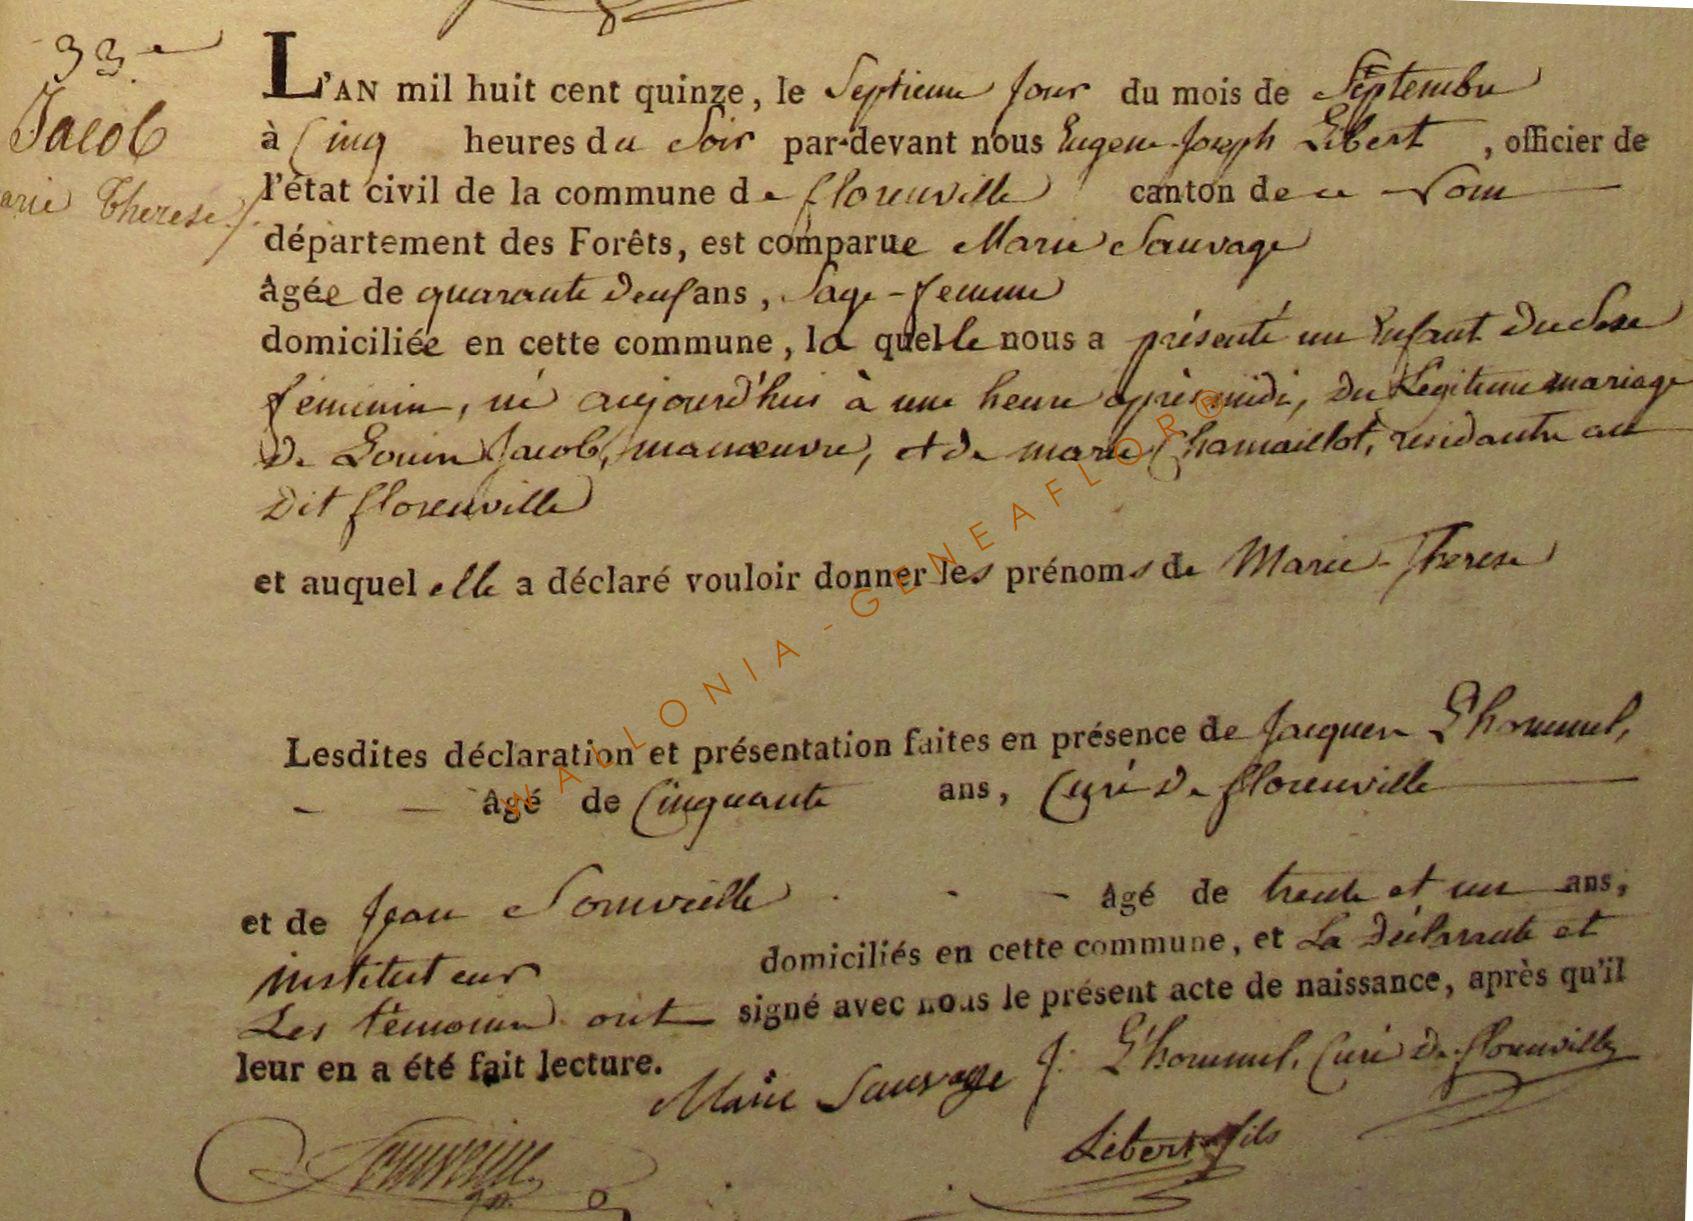 33e
Jacob
arie Therese
L'AN mil huit cent quinze, le Septieme Jour du mois de Septembre
à Cinq heures du Soir par-devant nous Eugene Joseph Libert, officier de
l'état civil de la commune de florenville canton de ce Nom
département des Forêts, est comparue Marie Sauvage
âgée de quarante deuf ans, Sage-femme
domiciliée en cette commune, la quelle nous a présenté un Enfant du Sexe
féminin, né aujourd'hui à une heure après midi, du Legitime mariage
de Louin Jacob, manœuvre, et de marie Chamaillot, residante au
dit florenville
et auquel elle a déclaré vouloir donner les prénoms de Marie-Therese
Lesdites déclaration et présentation faites en présence de Jacques L'hommel,
âgé de Cinquante ans, Curé de florenville
et de Jean Somvielle âgé de trente et un ans,
instituteur domiciliés en cette commune, et La Déclarante et
Les témoins ont signé avec nous le présent acte de naissance, après qu'il
leur en a été fait lecture.
Marie Sauvage J. L'hommel, Curé de florenville
Libert fils
WALLONIA-GENEAFLOR®